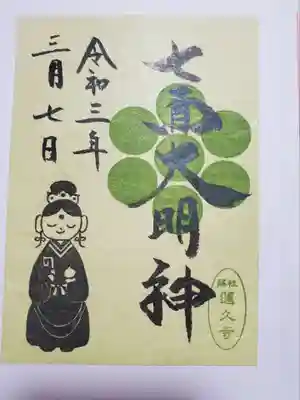 七面大明神
蓮久寺
令和三年
三月七日